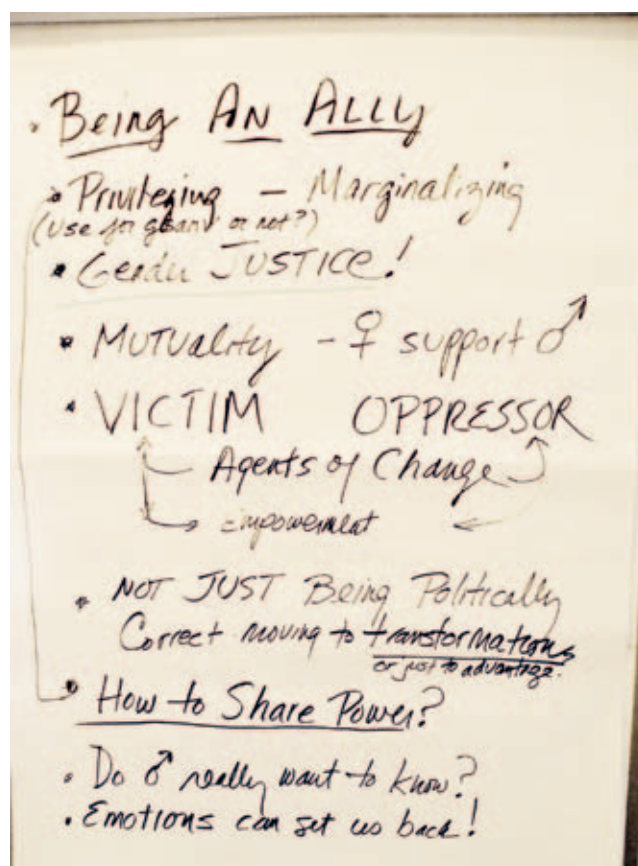 • Being An Ally
• Privileging – Marginalizing
(Use for or not?)
• Gender JUSTICE!
• Mutuality – ♀ support ♂
• VICTIM OPPRESSOR
Agents of Change
Empowerment
• NOT JUST Being Politically
Correct moving to transformations
or just to advantage.
• How to Share Power?
• Do ♂ really want to know?
• Emotions can set us back!